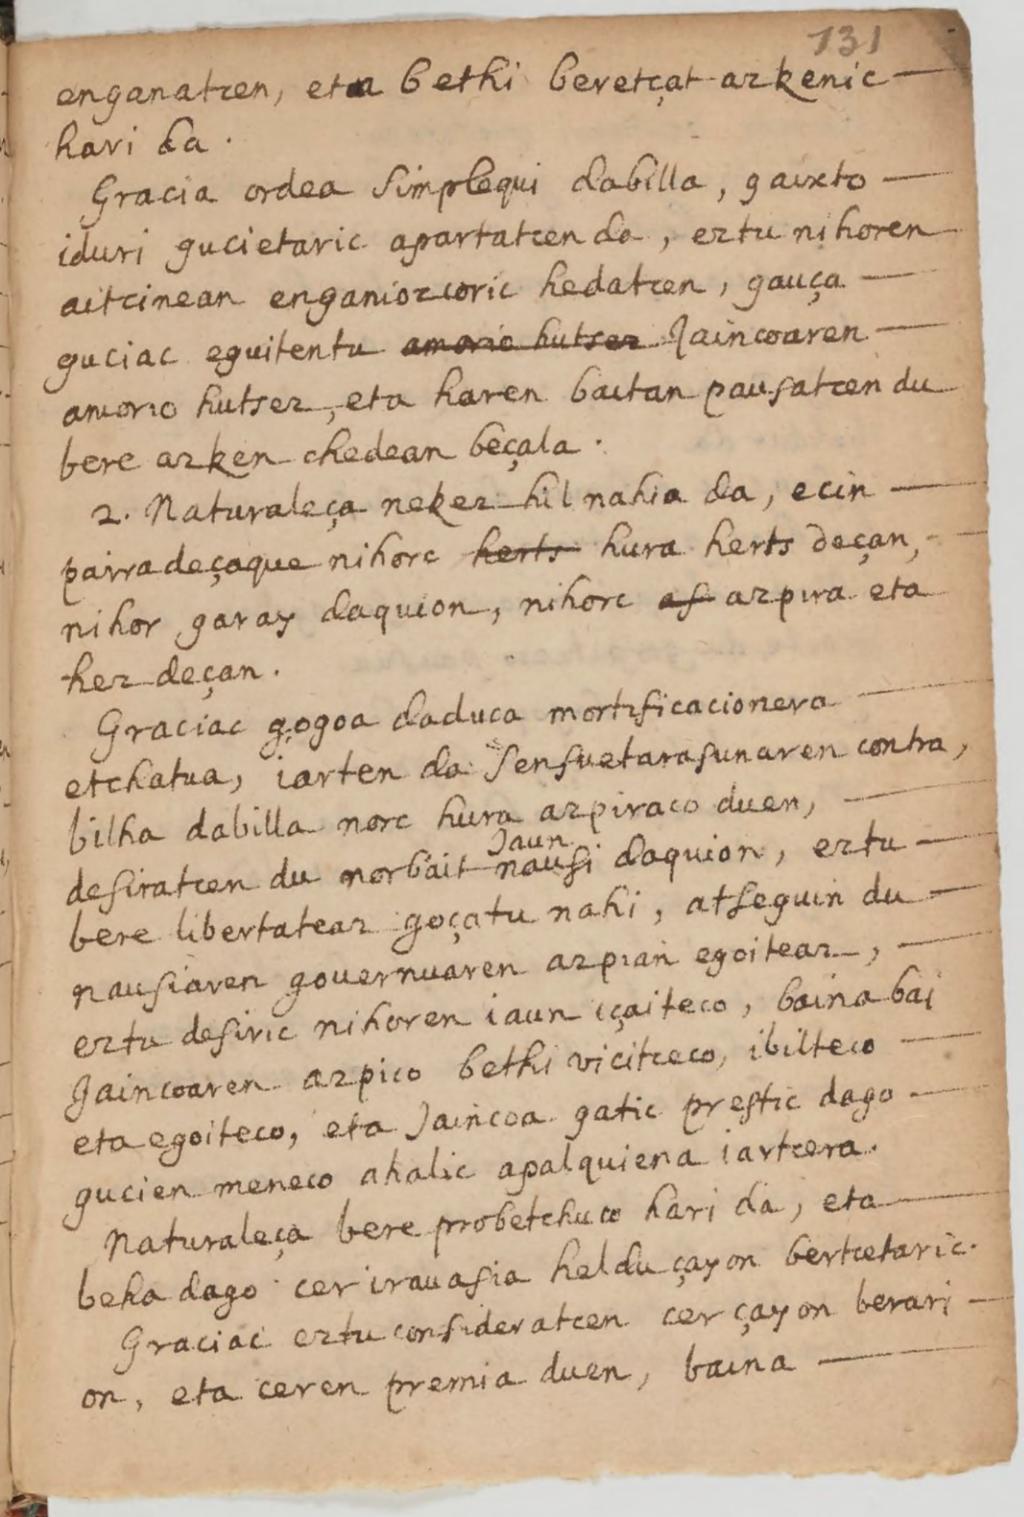 131
enganatcen, eta bethi beretçat azkenic
hari da.
Gracia ordea simplequi dabilla, gaixto
iduri gucietaric apartatcen da, eztu nihoren
aitcinean enganiozcoric hedatcen, gauça
guciac eguitentu amorio hutsez Jaincoaren
amorio hutsez, eta haren baitan pausatcen du
bere azken chedean beçala.
2. Naturaleça nekez hil nahia da, ecin
pairradeçaque nihorc herts hura herts deçan,
nihor garay daquion, nihorc as azpira eta
hez deçan.
Graciac gogoa daduca mortificacionera
etchatua, iarten da sensuetarasunaren contra,
bilha dabilla norc hura azpiraco duen,
Jaun
desiratcen du norbait nausi daquion, eztu
bere libertateaz goçatu nahi, atseguin du
nausiaren gouernuaren azpian egoiteaz,
eztu desiric nihoren iaun içaiteco, baina bai
Jaincoaren azpico bethi vicitceco, ibilteco
eta egoiteco, eta Jaincoa gatic prestic dago
gucien meneco ahalic apalquiena iartcera.
Naturaleça bere probetchuco hari da, eta
beha dago cer irauasia heldu çayon bertcetaric.
Graciac eztu consideratcen cer çayon berari
on, eta ceren premia duen, baina